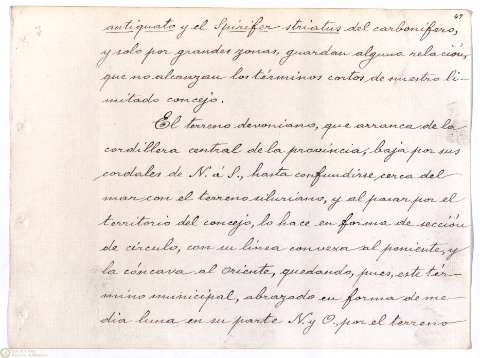 47
antiguato y el Spirifer striatus del carbonífero,
y solo por grandes zonas, guardan alguna relación,
que no alcanzan los términos cortos de nuestro li-
mitado concejo.
El terreno devoniano, que arranca de la
cordillera central de la provincia, baja por sus
cordales de N. á S., hasta confundirse, cerca del
mar con el terreno siluriano, y al pasar por el
territorio del concejo, lo hace en forma de sección
de círculo, con su línea convexa al poniente, y
la cóncava al Oriente, quedando, pues, este tér-
mino municipal, abrazado en forma de me-
dia luna en su parte N. y O. por el terreno